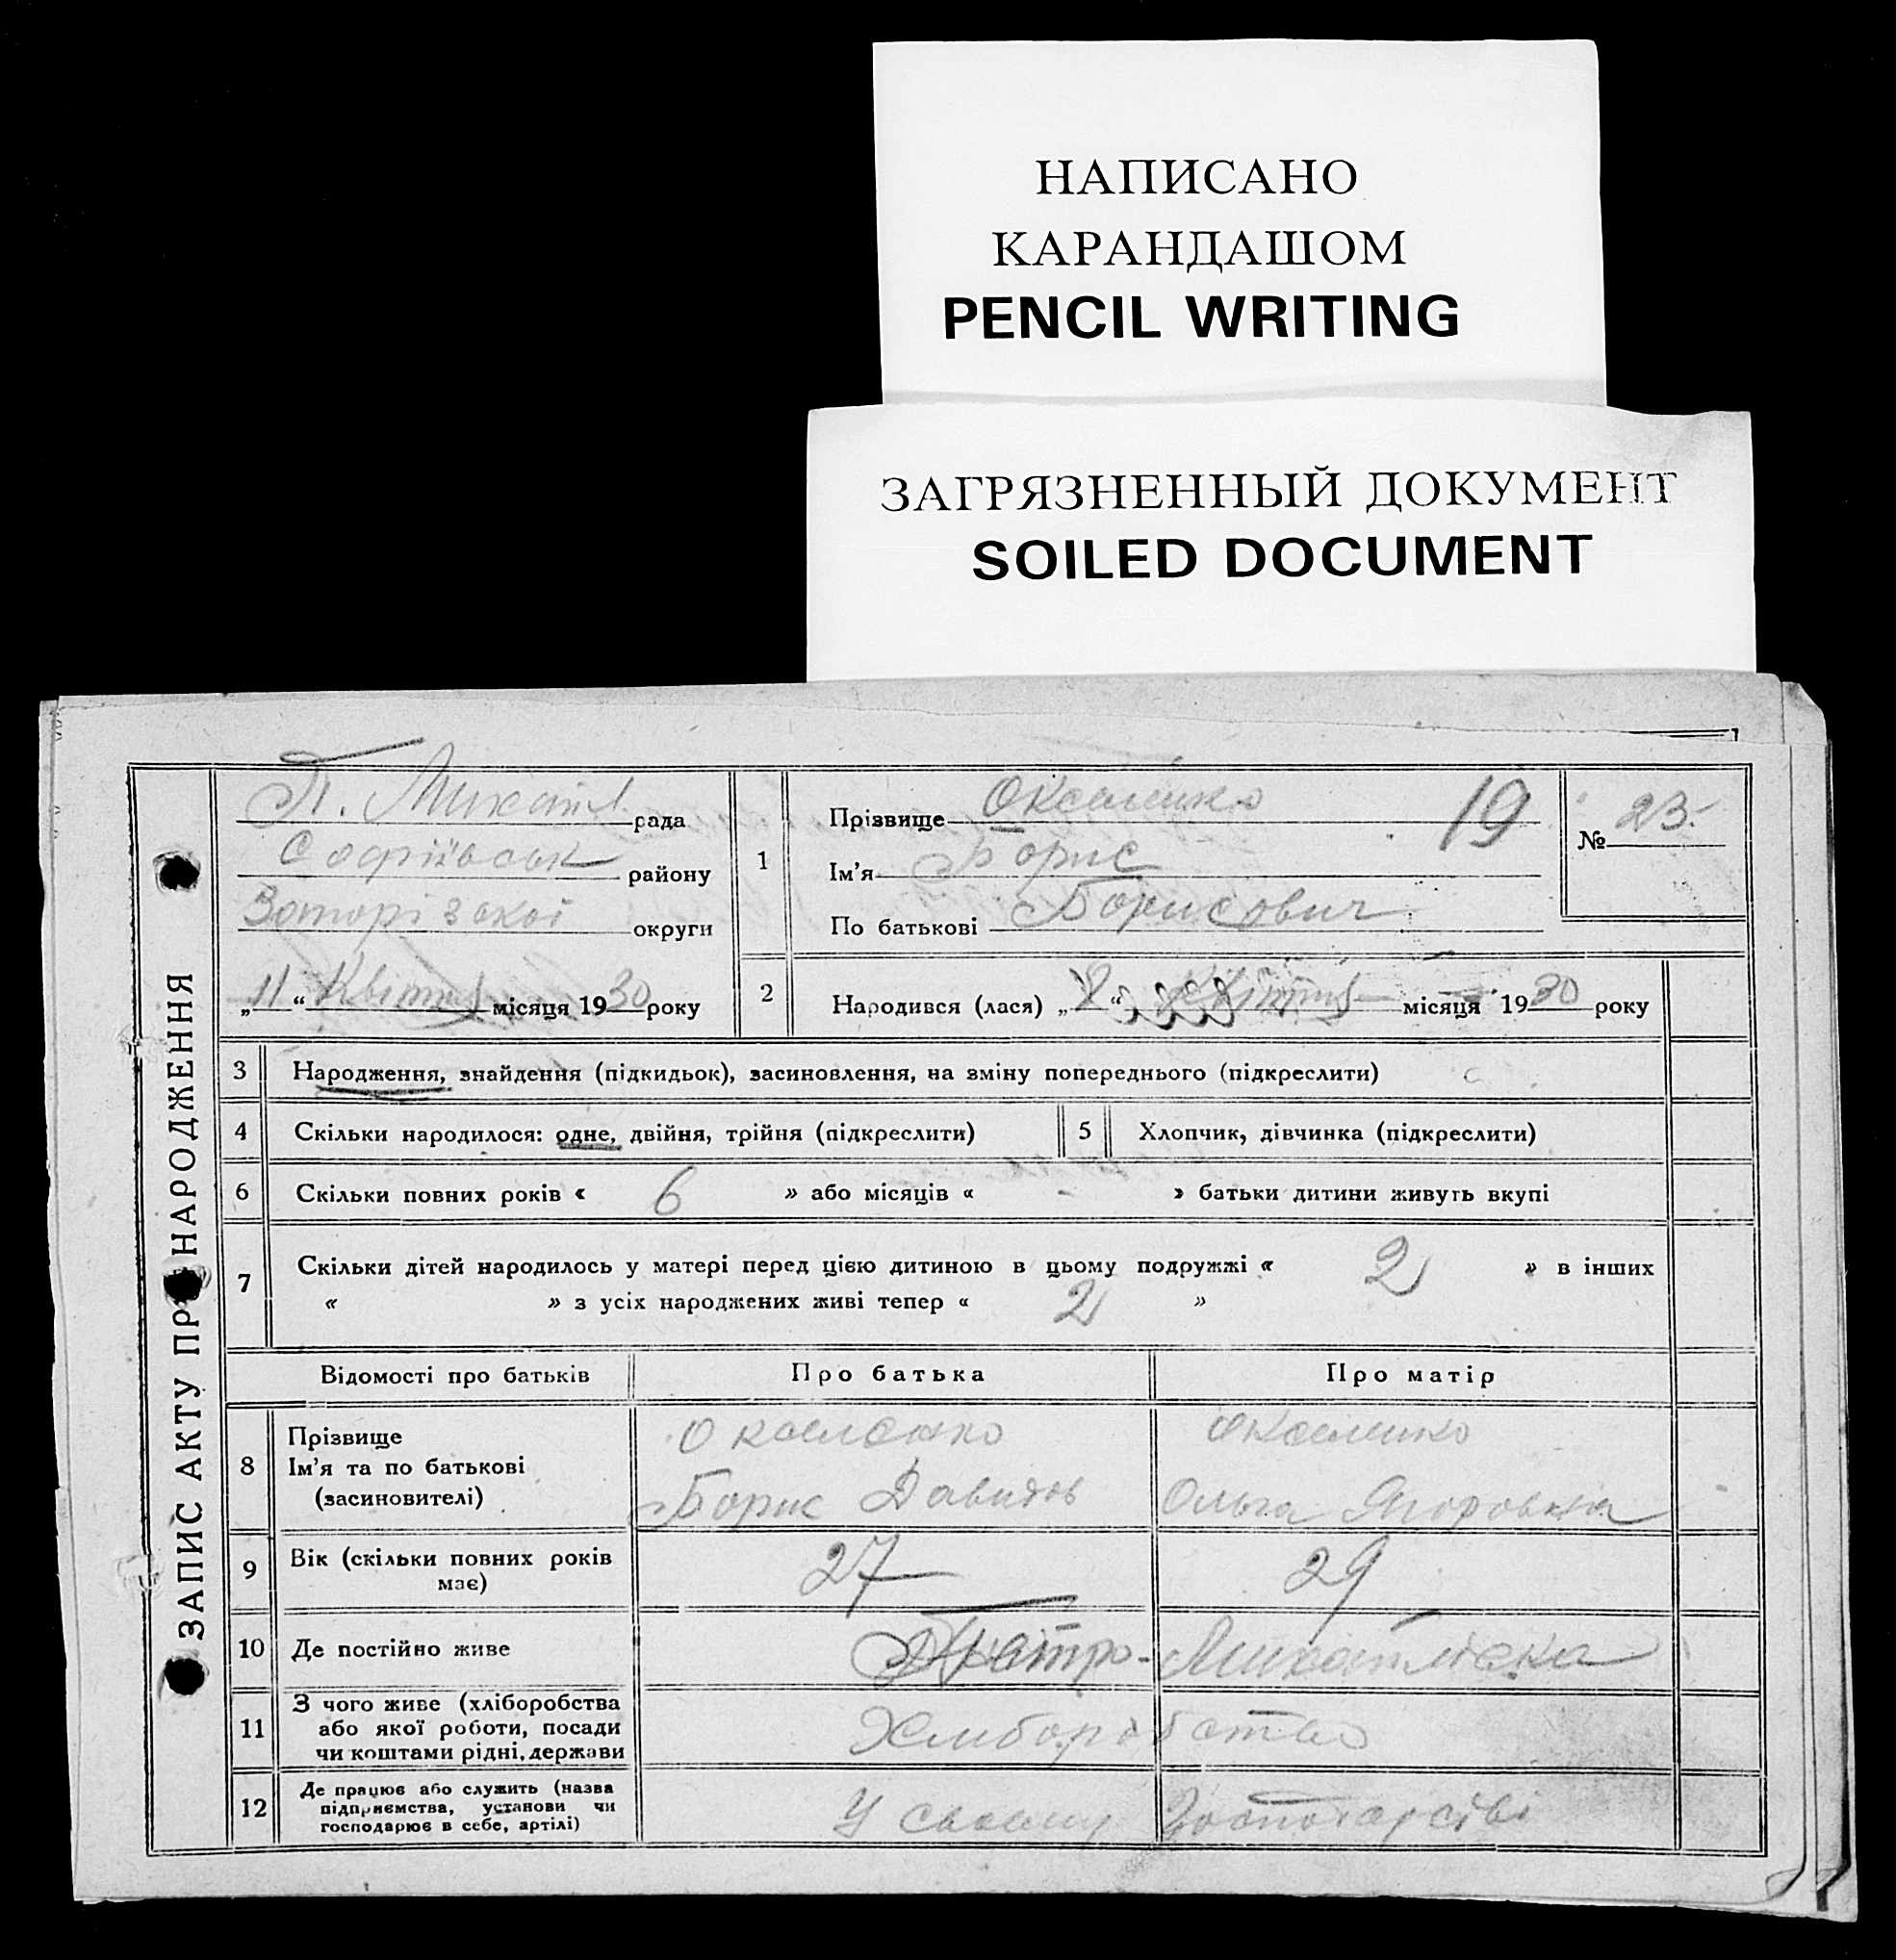 НАПИСАНО
КАРАНДАШОМ
PENCIL WRITING
ЗАГРЯЗНЕННЫЙ ДОКУМЕНТ
SOILED DOCUMENT
ЗАПИС АКТУ ПР НАРОДЖЕННЯ
П. Михайл. рада
Софіївськ району
округи
„11“ Квітня місяця 1930 року
1
Прізвище
19
Ім'я Борис
По батькові Борисович
№ 23.
2
Народився (лася) „ “ Квітня місяця 1930 року
3 Народження, знайдення (підкидьок), засиновлення, на зміну попереднього (підкреслити)
4 Скільки народилося: одне, двійня, трійня (підкреслити) 5 Хлопчик, дівчинка (підкреслити)
6 Скільки повних років « 6 » або місяців « - » батьки дитини живуть вкупі
7 Скільки дітей народилось у матері перед цією дитиною в цьому подружжі « 2 » в інших
« » з усіх народжених живі тепер « 2 »
Відомості про батьків Про батька Про матір
8 Прізвище
Ім'я та по батькові
(засиновителі)
Борис Давидов Ольга Ягоровна
9 Вік (скільки повних років
має)
27 29
10 Де постійно живе Петро- Михайлівка
11 З чого живе (хліборобства
або якої роботи, посади
чи коштами рідні, держави
Хліборобство
12 Де працює або служить (назва
підприємства, установи чи
господарює в себе, артілі)
У своему господарстві